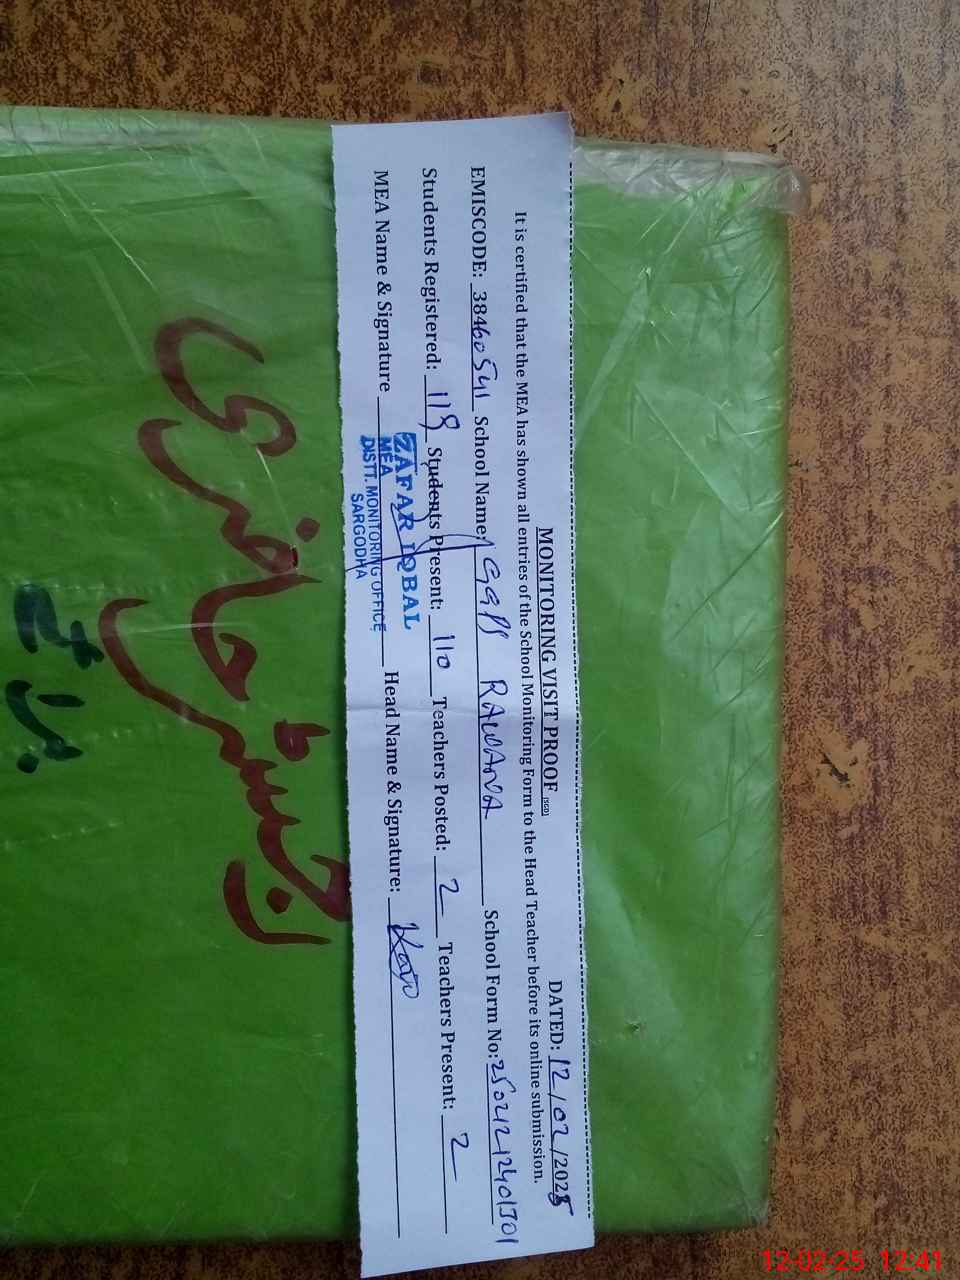 MONITORING VISIT PROOF (SGD) DATED: 12/02/2025
It is certified that the MEA has shown all entries of the School Monitoring Form to the Head Teacher before its online submission.
EMISCODE: 38460541 School Name: GGPS RAWANA School Form No: 25021212401301
Students Registered: 118 Students Present: 110 Teachers Posted: 2 Teachers Present: 2
MEA Name & Signature Head Name & Signature:
ZAFAR IQBAL
MEA
DISTT. MONITORING OFFICE
SARGODHA
رجسٹر حاضری
برائے
12-02-25 12:41